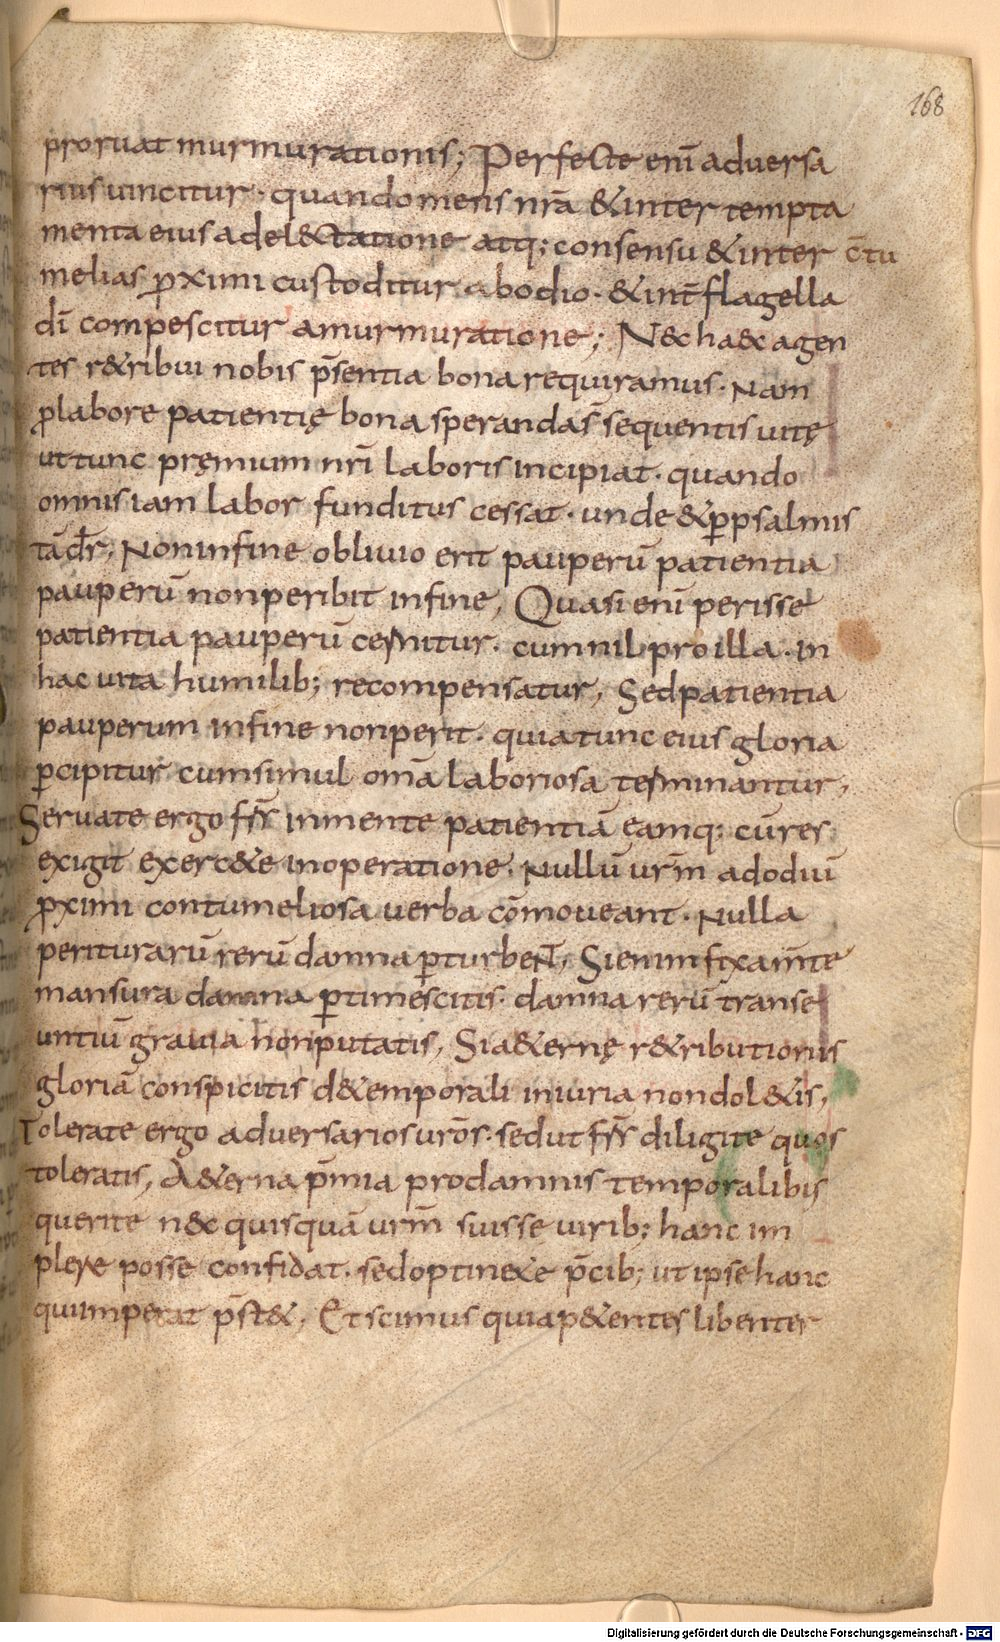 168
proruat murmurationis; Perfecte eni̅ adversa
rius uincitur · quando mens nr̅a & inter tempta
menta eius a del&ctatione atq; consensu & inter c̅tu
melias ꝓximi custoditur ab odio · & int̅ flagella
di̅ compescitur a murmuratione; N&c ha&c agen
tes r&ribui nobis p̅sentia bona requiramus · Nam
ꝓ labore patientię bona speranda s̅ sequentis uitę
ut tunc pręmium nr̅i laboris incipiat · quando
omnis iam labor funditus cessat · unde & ꝑ psalmis
ta̅ dr̅; Non in fine obliuio erit pauperu̅ patientia
pauperu̅ non peribit in fine, Quasi eni̅ perisse
patientia pauperu̅ cernitur · cum nil pro illa · in
hac uita humilib; recompensatur, Sed patientia
pauperum in fine non perit · quia tunc eius gloria
ꝑcipitur cum simul om̅a laboriosa terminantur,
Seruate ergo fr̅s in mente patientia̅ ęamq; cu̅ res
exigit exerc&e in operatione. Nullu̅ ur̅m ad odiu̅
ꝓximi contumeliosa uerba co̅moueant · Nulla
perituraru̅ reru̅ damna ꝑturbent, Si enim fixa m̅te
mansura damna ꝑtimescitis · damna reru̅ transe
untiu̅ grauia non putatis, Si a&ernę r&ributionis
gloria̅ conspicitis d&emporali iniuria non dol&is,
Tolerate ergo adversarios uro̅s · sed ut fr̅s diligite quos
toleratis, A&erna p̅mia pro damnis temporalibis
querite n&c quisqua̅ ur̅m suis se uirib; hanc im
plere posse confidat · sed optinete p̅cib; ut ipse hanc
qui imperat p̅st&, Et scimus quia p&entes libenter
Digitalisierung gefördert durch die Deutsche Forschungsgemeinschaft - DFG